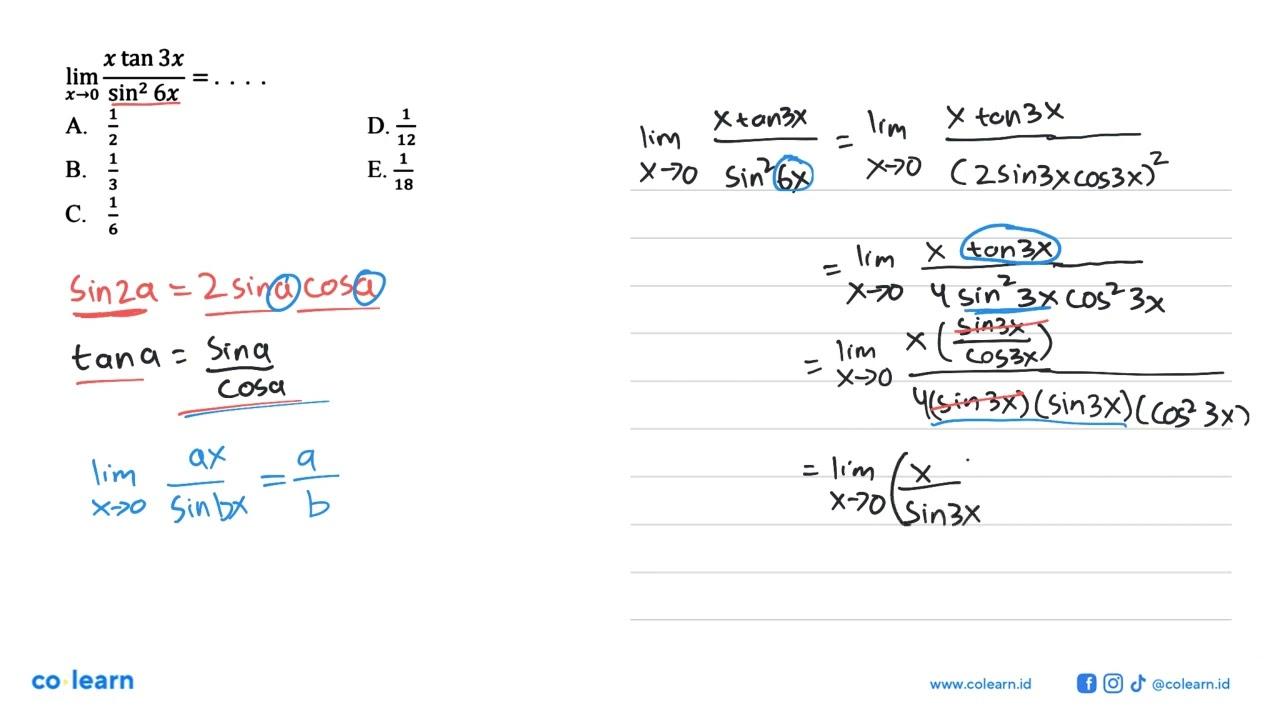 lim x→0 (x tan 3x)/(sin² 6x) = . . . .
A. 1/2
B. 1/3
C. 1/6
D. 1/12
E. 1/18
sin2a = 2 sina cosa
tan a = sina/cosa
lim x→0 ax/sinbx = a/b
lim x→0 xtan3x/sin²6x = lim x→0 x tan3x/(2sin3xcos3x)²
= lim x→0 x tan3x/4 sin²3x cos²3x
= lim x→0 x(sin3x/cos3x)/4(sin3x)(sin3x)(cos²3x)
= lim x→0 (x/sin3x
co learn
www.colearn.id
@colearn.id